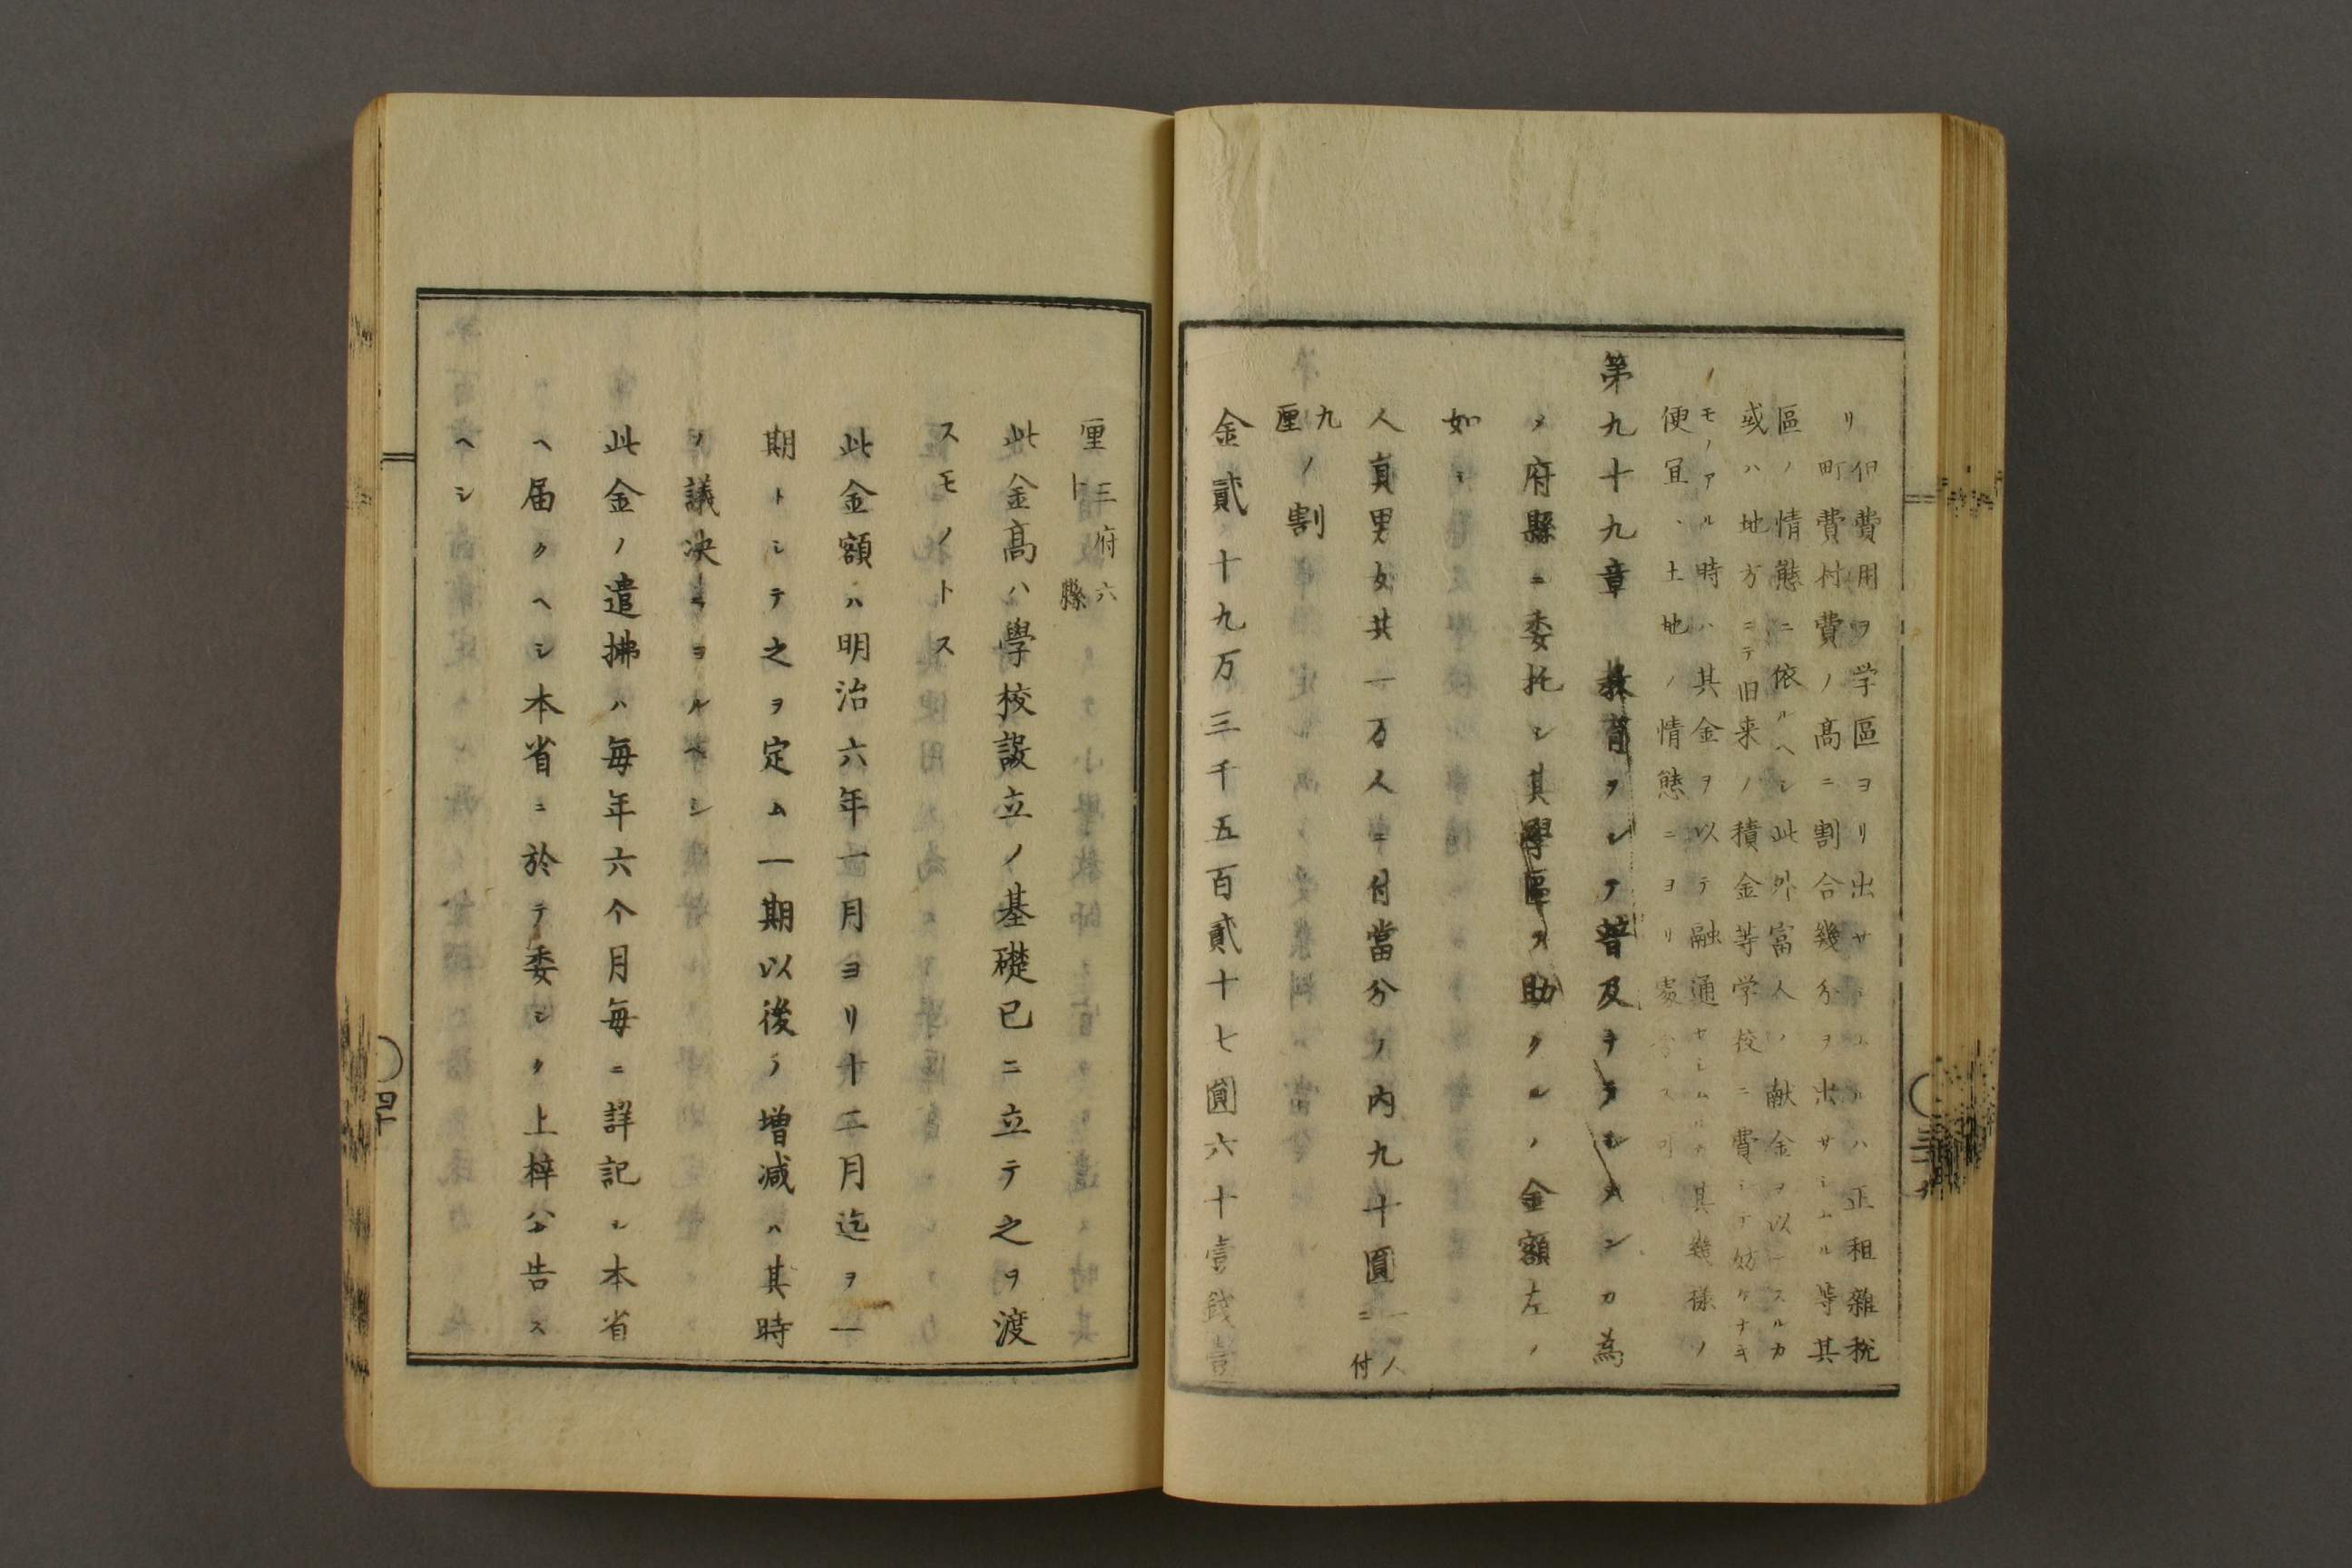 リ但費用ヲ学區ヨリ出サシムルハ正租雜税
町費村費ノ高ニ割合幾分ヲ出サシムル等其
區ノ情態ニ依ルヘシ此外富人ノ献金ヲ以ースルカ
或ハ地方ニテ旧来ノ積金等学校ニ費シテ妨ケナキ
モノアル時ハ其金ヲ以テ融通サシムルナ其幾様ノ
便宜、土地ノ情態ニヨリ処分ス可
第九十九章 教育ヲシテ普及ナラシメンカ為
メ府縣ニ委托シ其學區ヲ助クルノ金額左ノ
如シ
人員男女共一万人ニ付當分ノ内九十圓一人ニ付
九厘ノ割
金貳十九万三千五百貳十七圓六十壹錢壹
厘三府六ト縣
此金髙ハ學校設立ノ基礎已ニ立テ之ヲ渡
スモノトス
此金額ハ明治六年一月ヨリ十二月迄ヲ一
期トシテ之ヲ定ム一期以後ノ増減ハ其時
ノ議决ニヨルヘシ
此金ノ遣拂ハ毎年六个月毎ニ詳記シ本省
ヘ届クヘシ本省ニ於テ委シク上梓公告ス
ヘシ
四十
三十九